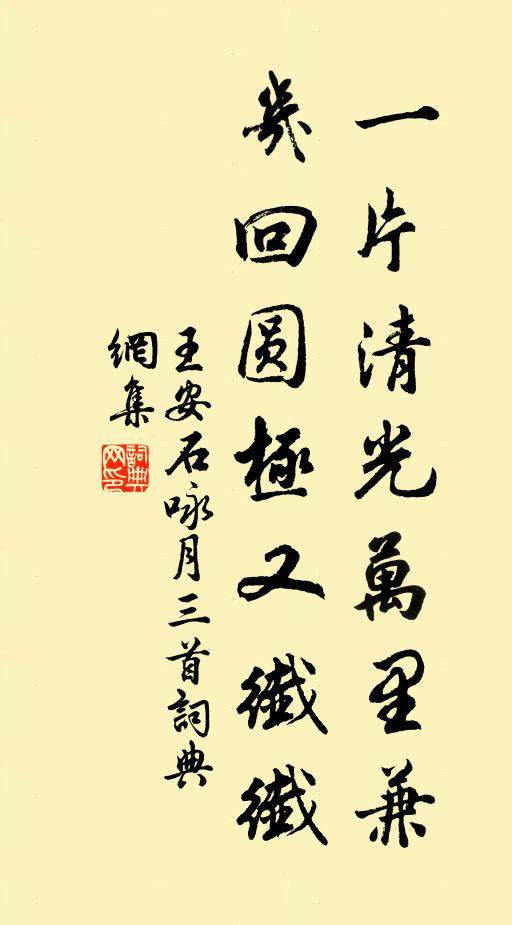 一片清光萬里兼
幾回圓極又纖纖
王安石咏月三首詞典
網集
詞典網印